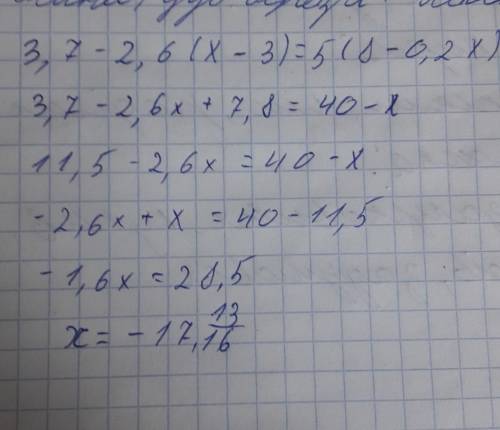 3,7 - 2,6 (x - 3) = 5 (8 - 0,2x)
3,7 - 2,6x + 7,8 = 40 - x
11,5 - 2,6x = 40 - x
- 2,6x + x = 40 - 11,5
- 1,6x = 28,5
x = - 17, 13/16